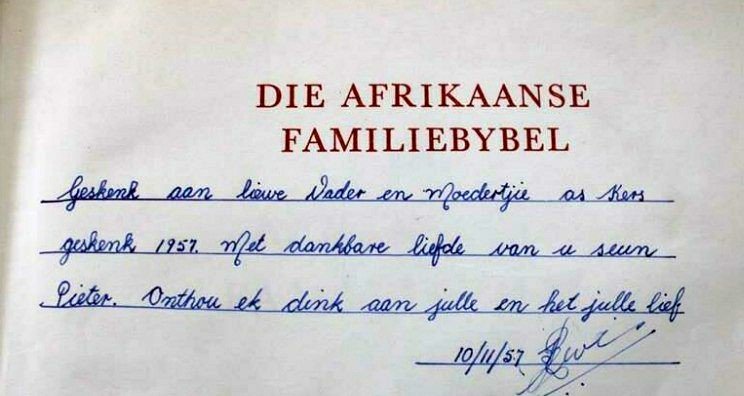 DIE AFRIKAANSE
FAMILIEBYBEL
Geskenk aan liewe Vader en Moedertjie as Kers
geskenk 1957. Met dankbare liefde van u seun
Pieter. Onthou ek dink aan julle en het julle lief
10/11/57